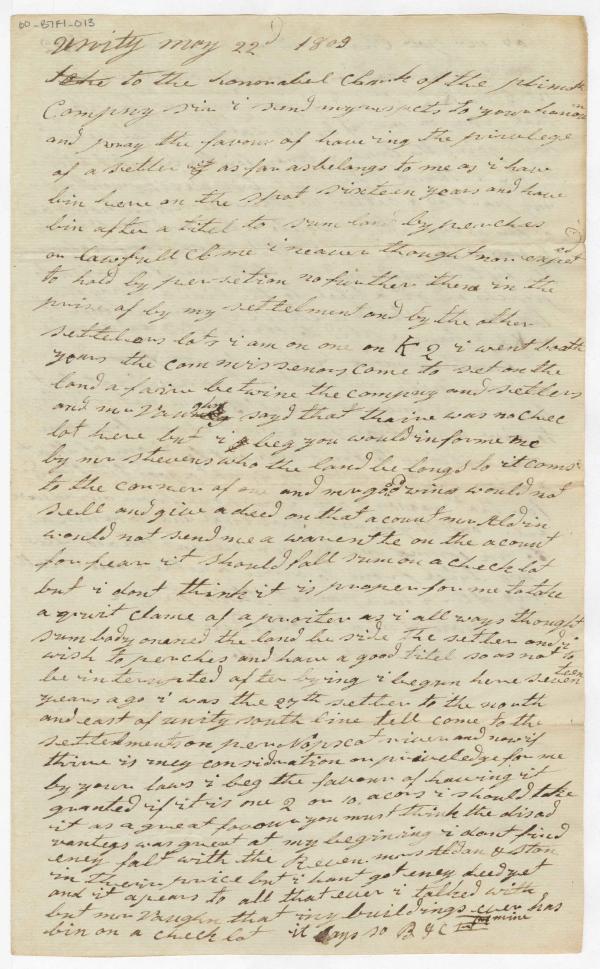 00-B7F1-013
1)
Unity may 22d 1809
to the honorabel Clark of the plimoth
Compeny sir i send my respects to your honour
and pray the favour of haveing the privelege
of a settler as far as belongs to me as i have
bin here on the spot sixteen years and have
bin after a titel to sum land by perches
or lawfull Clame i neaver thought nor expected
to hold by persetion no further then in the
prise of by my settelment and by the other
settelors lots i am on one on K 2 i went both
years the commissenors came to set on the
land afaire betwine the compeny and settlers
and mr Vaughn sayd that thaire was no chec
lot here but i beg you would informe me
by mr stevens who the land be longd to it coms
to the corner of and mr goodwins would not
sell and give a deed on that acount mr Aldin
would not send me a warente on the acount
for fear it should fall sum on a check lot
but i dont think it is proper for me to take
a qruit clame of a as i all ways thought
sum body oned the land be side the settler and i
wish to perches and have a good titel so as not to
be interupted after bying i begun here seventeen
years ago i was the 27th settler to the north
and east of unity south line tell come to the
settelments on penobscot river and now if
thire is eney considration or priveledge for me
by your laws i beg the favour of having it
granted if it is one 2 or 10 acors i should take
it as a great favour you must think the disad
vanteg was great at my begining i dont find
eney falt with the Reven. mrs Aldan & Ston
in their price but i hant got eney deed yet
and it apears to all that ever i talked with
but mr Vaughn that my buildings ever has
bin on a check lot it lays so B & C mine